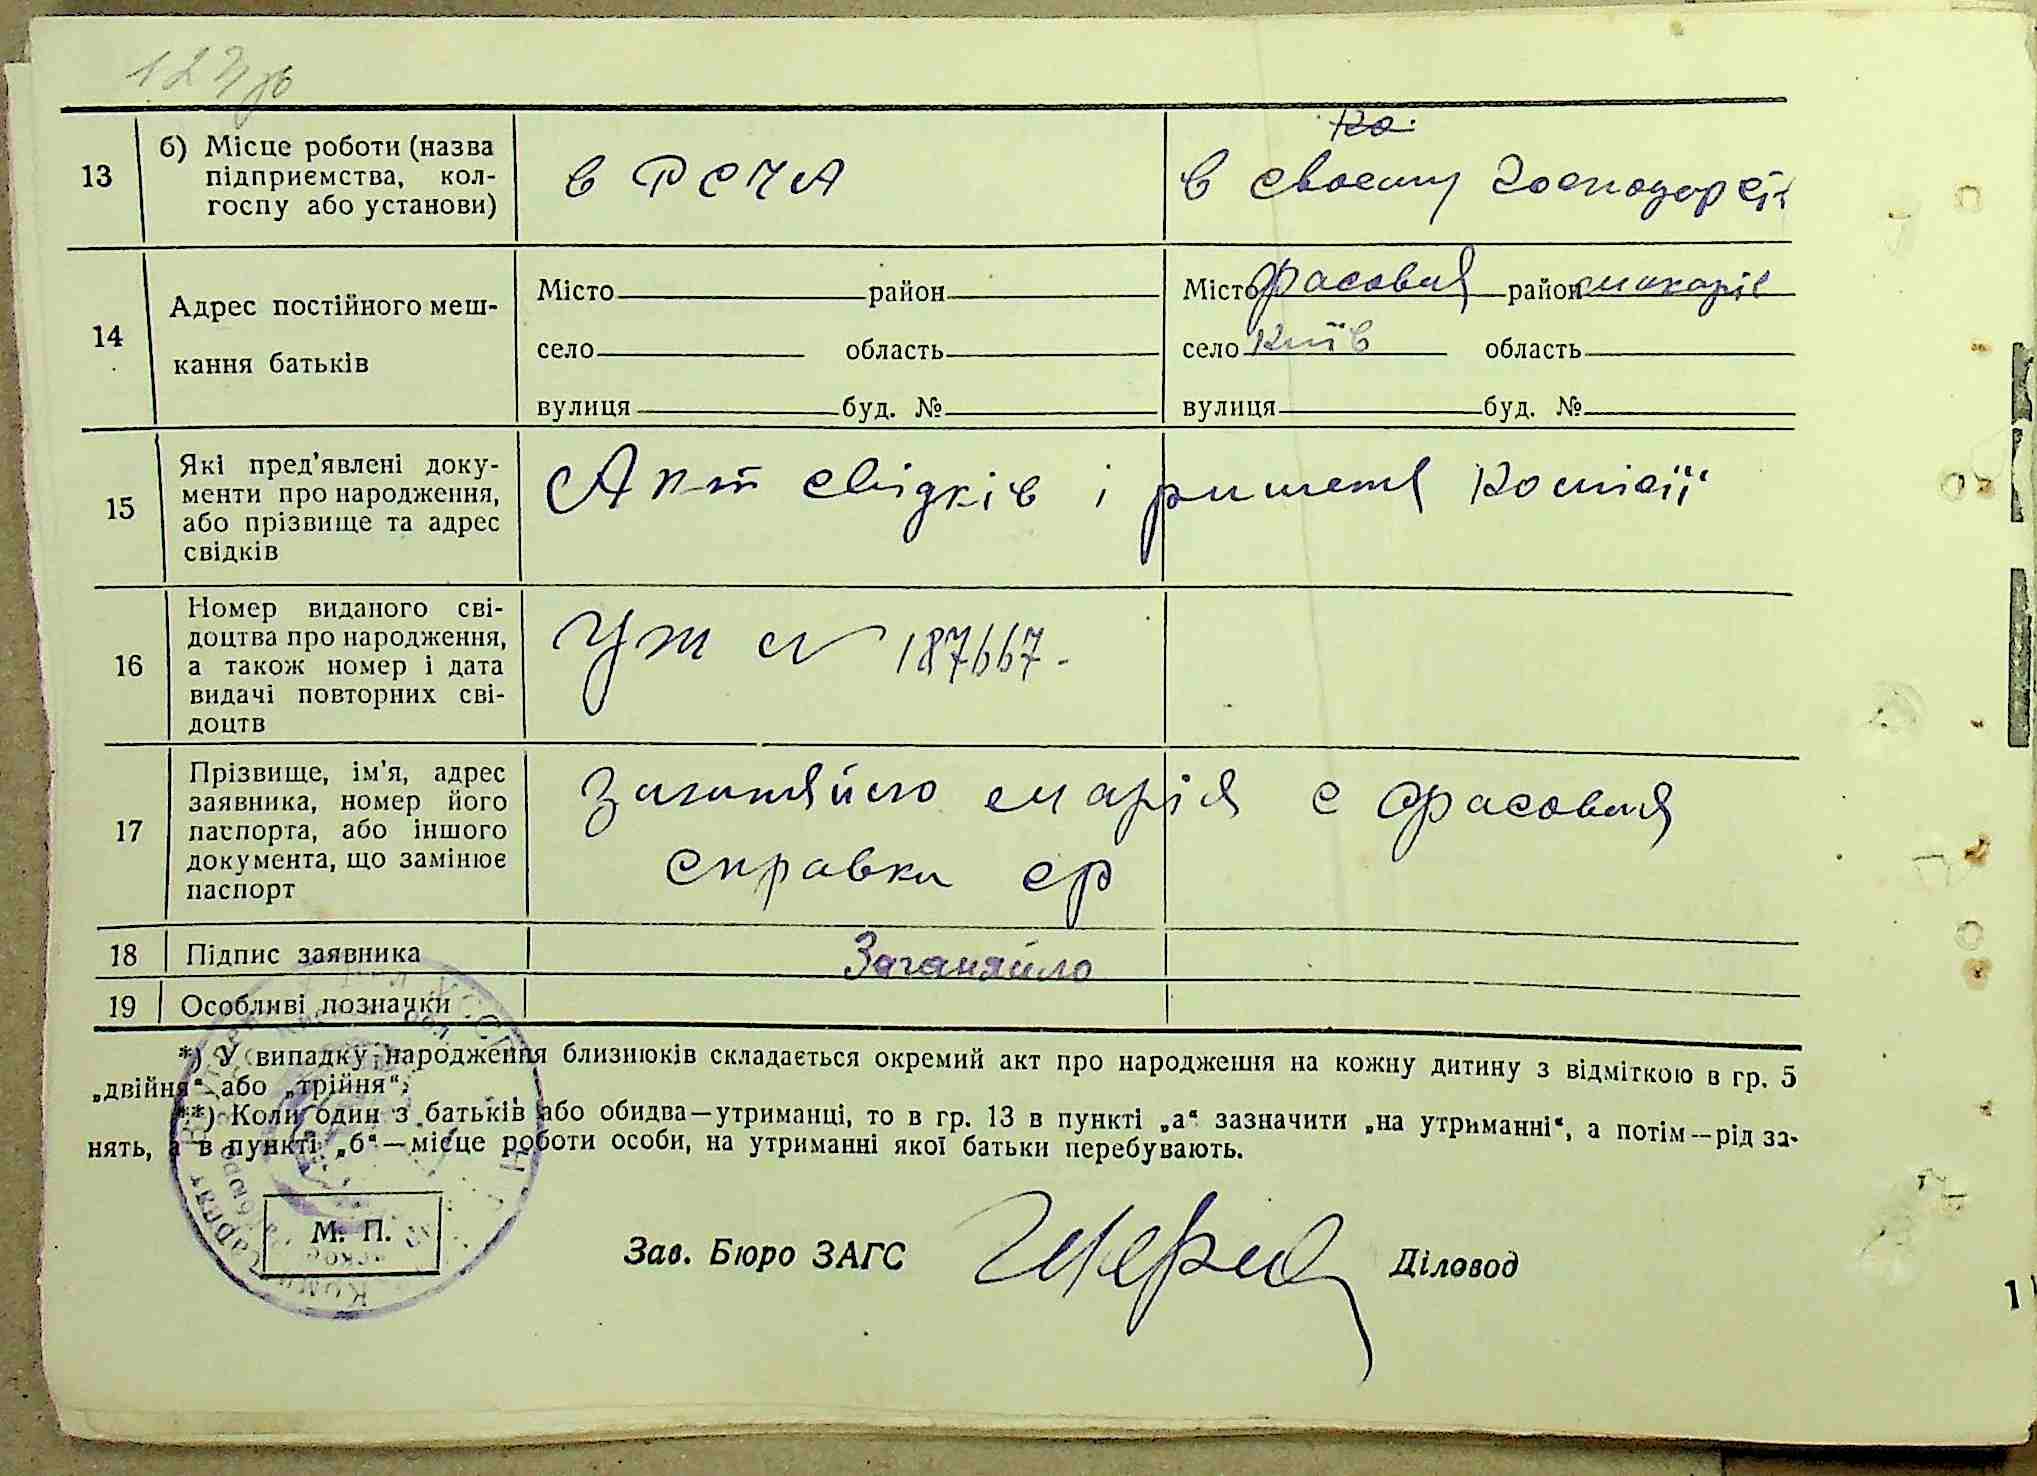 123 зв
13
б) Місце роботи (назва
підприємства, кол-
госпу або установи)
в РСЧА
в своєму господарстві
14
Адрес постійного меш-
кання батьків
Місто район
село область
вулиця буд. №
Місто Фасовая район макарів
село Київ область
вулиця буд. №
15
Які пред'явлені доку-
менти про народження,
або прізвище та адрес
свідків
Акт свідків і ришення комісії
16
Номер виданого сві-
доцтва про народження,
а також номер і дата
видачі повторних сві-
доцтв
УЖ № 187667-
17
Прізвище, ім'я, адрес
заявника, номер його
паспорта, або іншого
документа, що замінює
паспорт
Заганяйло марія с Фасовая
справка ср
18
Підпис заявника
Заганяйло
19
Особливі позначки
*) У випадку народження близнюків складається окремий акт про народження на кожну дитину з відміткою в гр. 5
„двійня“ або „трійня“.
**) Коли один з батьків або обидва—утриманці, то в гр. 13 в пункті „а“ зазначити „на утриманні“, а потім—рід за-
нять, а в пункті „б“—місце роботи особи, на утриманні якої батьки перебувають.
М. П.
Зав. Бюро ЗАГС
Діловод